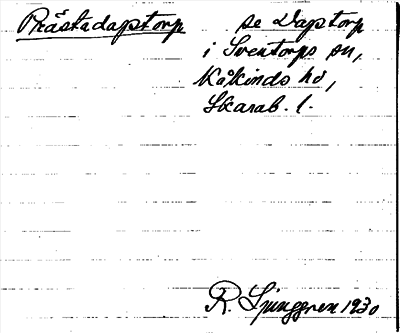 Prästadapstorp se Dapstorp
i Sventorps sn,
Kåkinds hd,
Skarab. l.
R. Ljunggren 1930